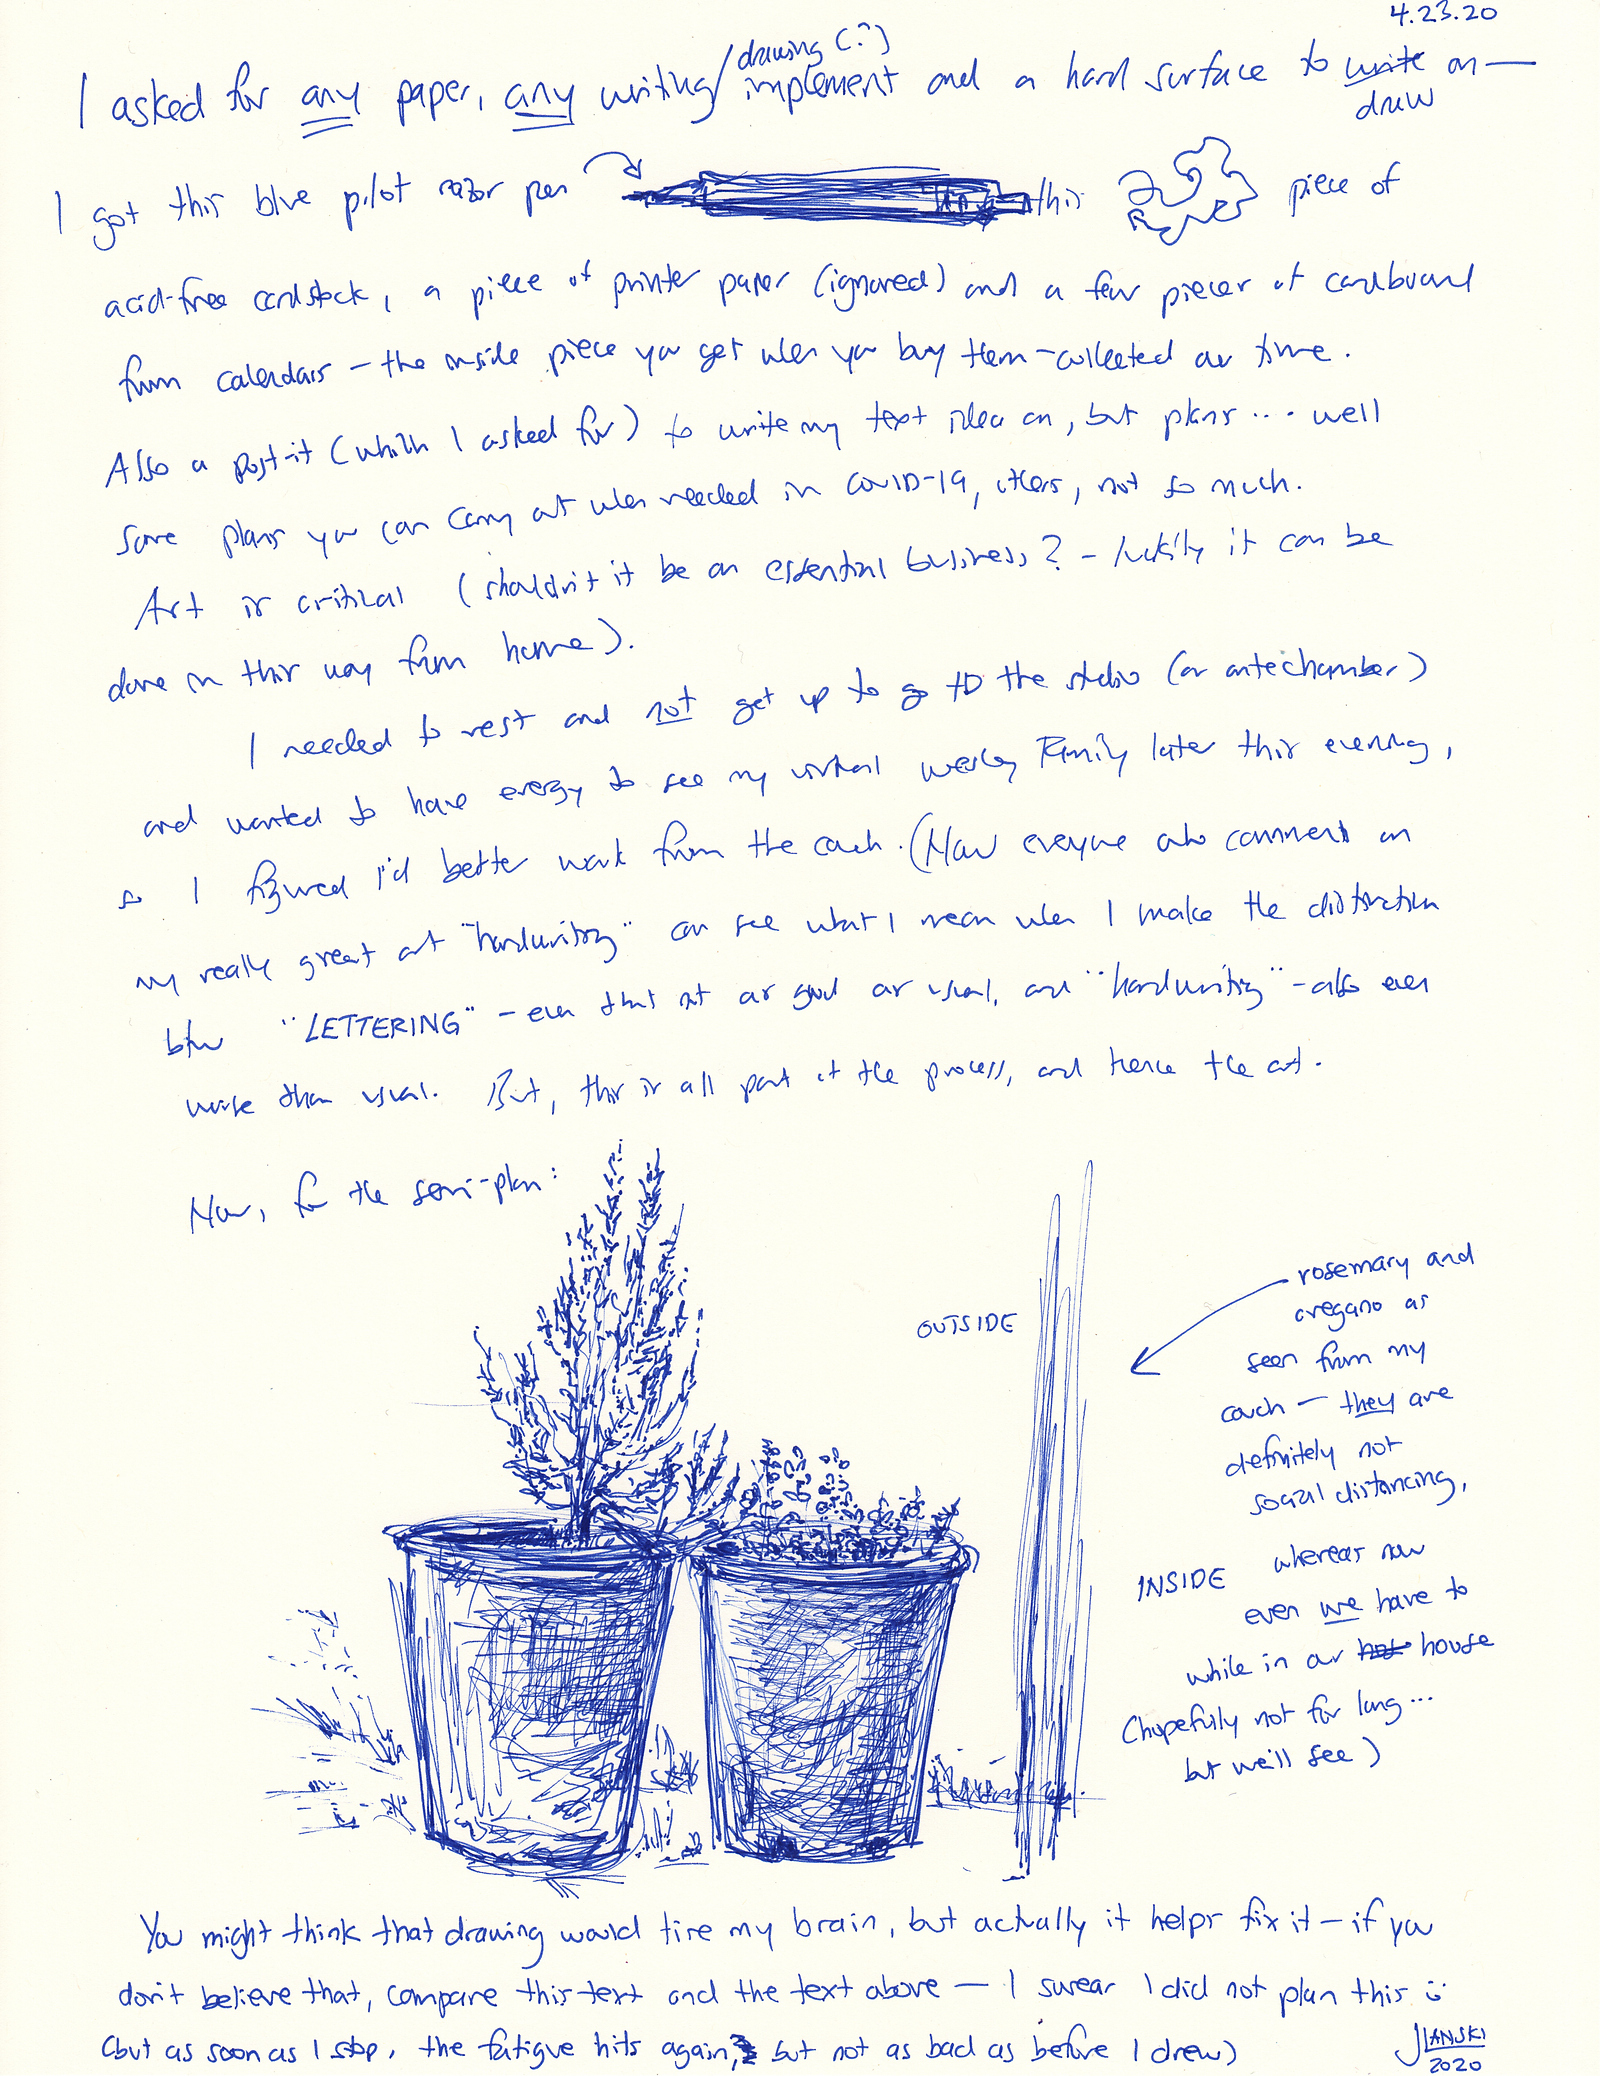 4.23.20
drawing (?)
I asked for any paper, any writing/implement and a hard surface to write on —
draw
I got this blue pilot razor pen this piece of
acid-free cardstock, a piece of printer paper (ignored) and a few pieces of cardboard
from calendars – the inside piece you get when you buy them – collected over time.
Also a post-it (which I asked for) to write my text idea on, but plans .... well
some plans you can carry out when needed in COVID-19, others, not so much.
Art is critical (shouldn't it be an essential business? – luckily it can be
done in this way from home).
I needed to rest and not get up to go to the studio (or antechamber)
and wanted to have energy to see my virtual Wesley Family later this evening,
so I figured I'd better work from the couch. (Now everyone who comments on
my really great art "handwriting" can see what I mean when I make the distinction
btw "LETTERING" – even that not as good as usual, and "handwriting" – also even
worse than usual. But, this is all part of the process, and hence the art.
Now, for the semi-plan:
OUTSIDE
rosemary and
oregano as
seen from my
couch – they are
definitely not
social distancing,
INSIDE
whereas now
even we have to
while in our house
(hopefully not for long ...
but we'll see)
You might think that drawing would tire my brain, but actually it helps fix it – if you
don't believe that, compare this text and the text above – I swear I did not plan this
(but as soon as I stop, the fatigue hits again, but not as bad as before I drew)
JLANSKI
2020